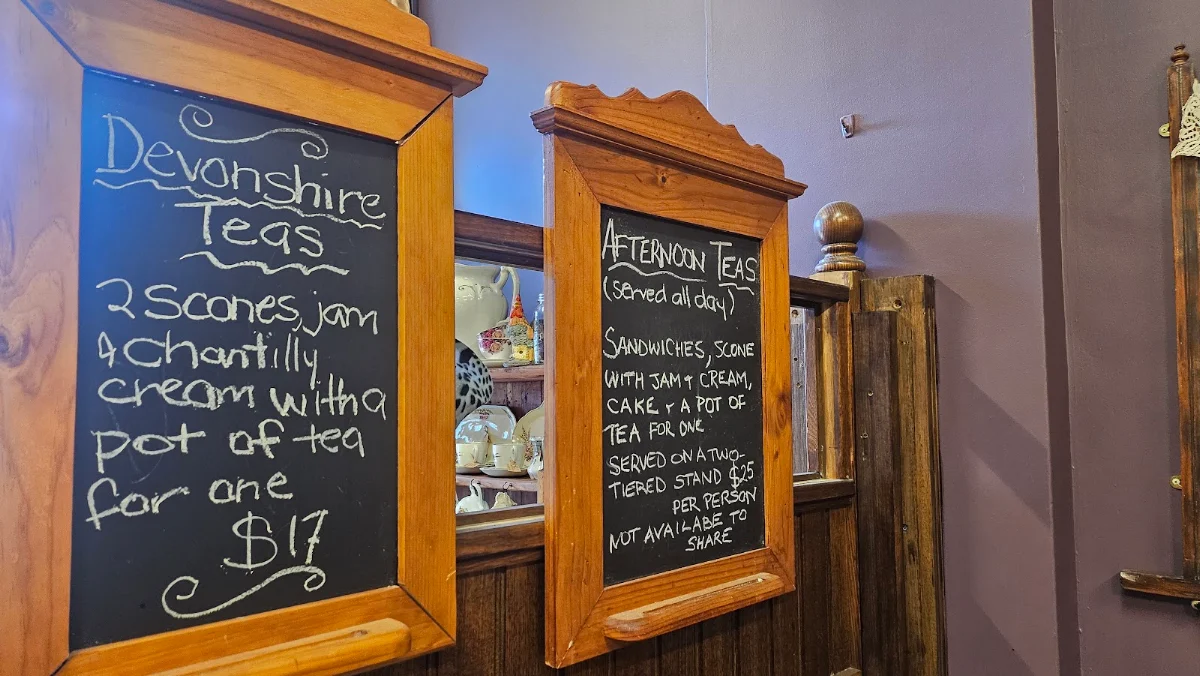 Devonshire
Teas
2 Scones, jam
& Chantilly
cream with a
pot of tea
for one
$17
AFTERNOON TEAS
(served all day)
SANDWICHES, SCONE
WITH JAM + CREAM,
CAKE + A POT OF
TEA FOR ONE
SERVED ON A TWO-
TIERED STAND $25
PER PERSON
NOT AVAILABE TO
SHARE